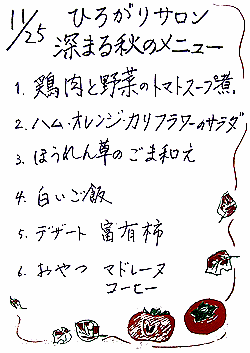 11/25 ひろがりサロン
深まる秋のメニュー
1. 鶏肉と野菜のトマトスープ煮
2. ハム・オレンジ・カリフラワーのサラダ
3. ほうれん草のごま和え
4. 白いご飯
5. デザート 富有柿
6. おやつ マドレーヌ
コーヒー